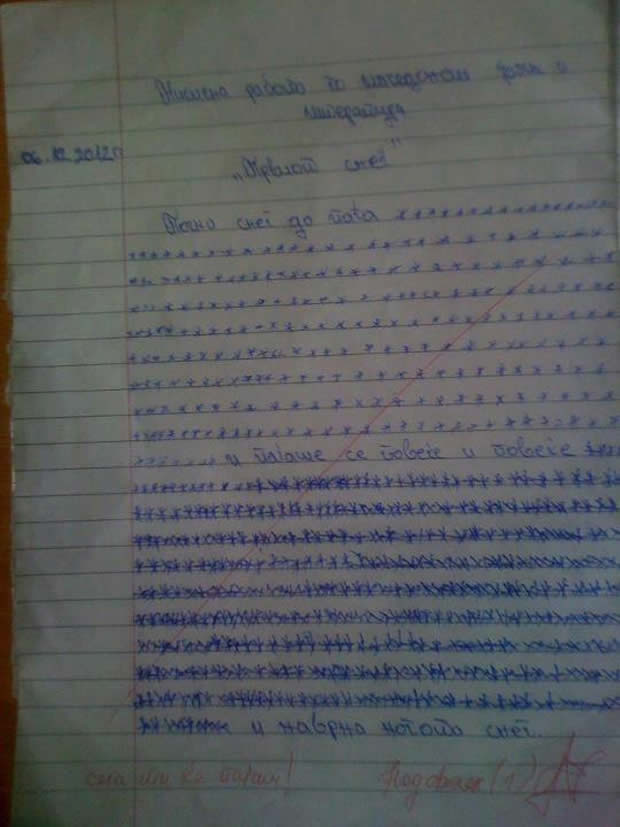 Писмена работа по македонски јазик и
литература
06.12.2012г
„Првиот снег"
Почна снег да паѓа
и паѓаше се повеќе и повеќе
и наврна снег.
Недоволен (1)